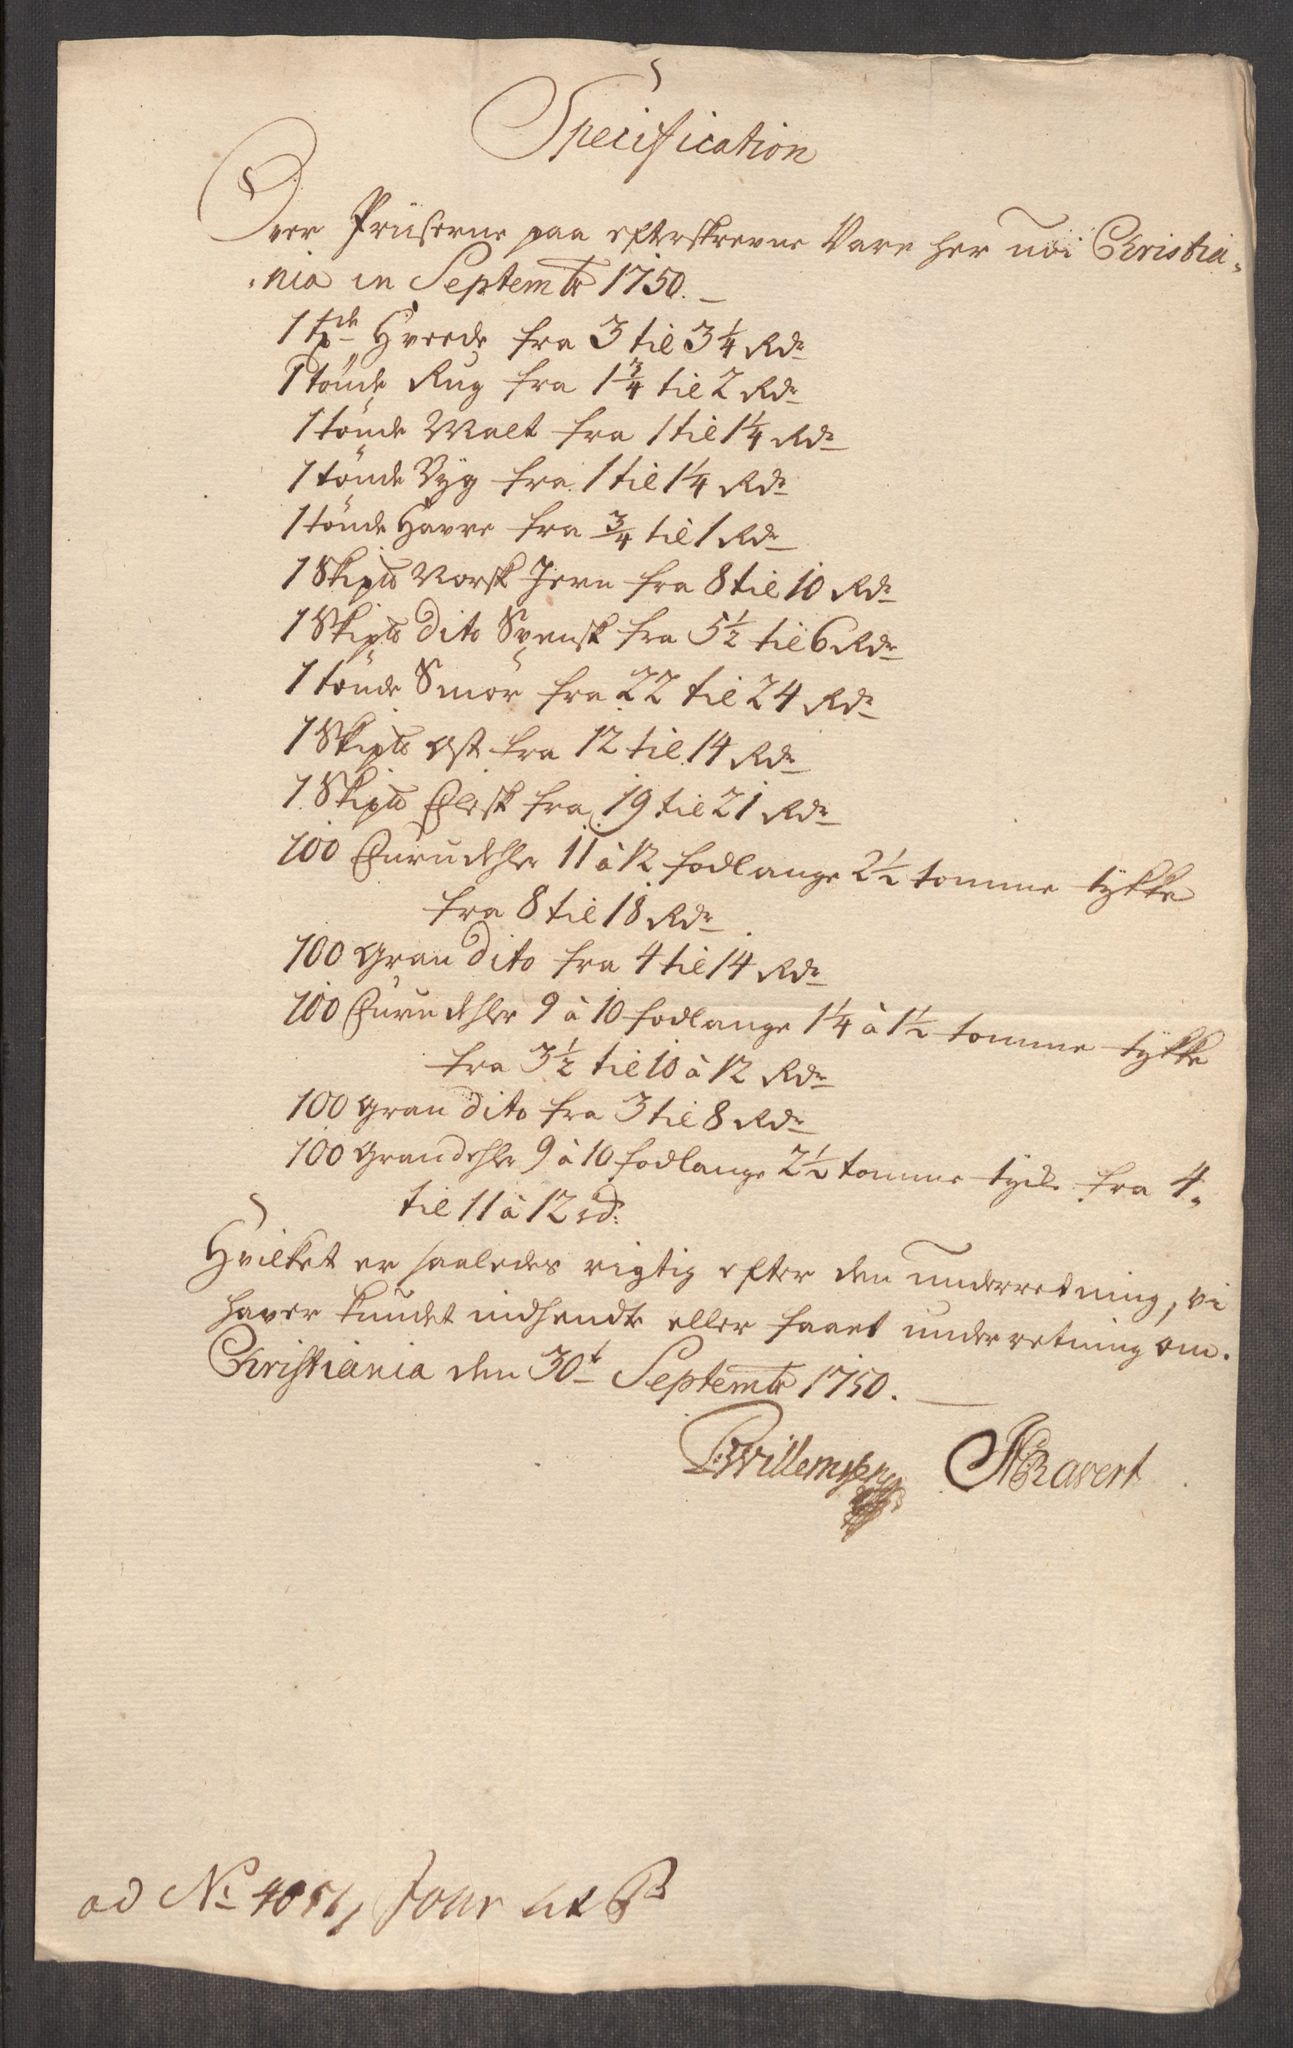 Specification
Over Priiserne paa efterskrevne Vare her udi Christia-
-nia in Septembr 1750.
1 tde Hveede fra 3 til 3 1/4 Rdr
1 tönde Rug fra 1 3/4 til 2 Rdr
1 tönde Malt fra 1 til 1 1/4 Rdr
1 tönde Byg fra 1 til 1 1/4 Rdr
1 tönde Havre fra 3/4 til 1 Rdr
1 Skip℔ Norsk Jern fra 8 til 10 Rdr
1 Skip℔ dito Svensk fra 5 1/2 til 6 Rdr
1 tönde Smör fra 22 til 24 Rdr
1 Skip℔ Ost fra 12 til 14 Rdr
1 Skip℔ Flesk fra 19 til 21 Rdr
100 Furudehler 11 à 12 fodlange 2 1/2 tomme tykke
fra 8 til 18 Rdr
100 Gran dito fra 4 til 14 Rdr
100 Furudehler 9 à 10 fodlange 1 1/4 à 1 1/2 tomme tykke
fra 3 1/2 til 10 à 12 Rdr
100 Gran dito fra 3 til 8 Rdr
100 Grandehler 9 à 10 fodlange 2 1/2 tomme fra 4-
til 11 à 12 rd:
Hvilket er saaledes rigtig efter den underretning, vi
haver kundet indhendte eller faaet underretning om.
Christiania den 30t Septembr 1750.
Willemsen Ravert
ad No 4051 Jour Lit B